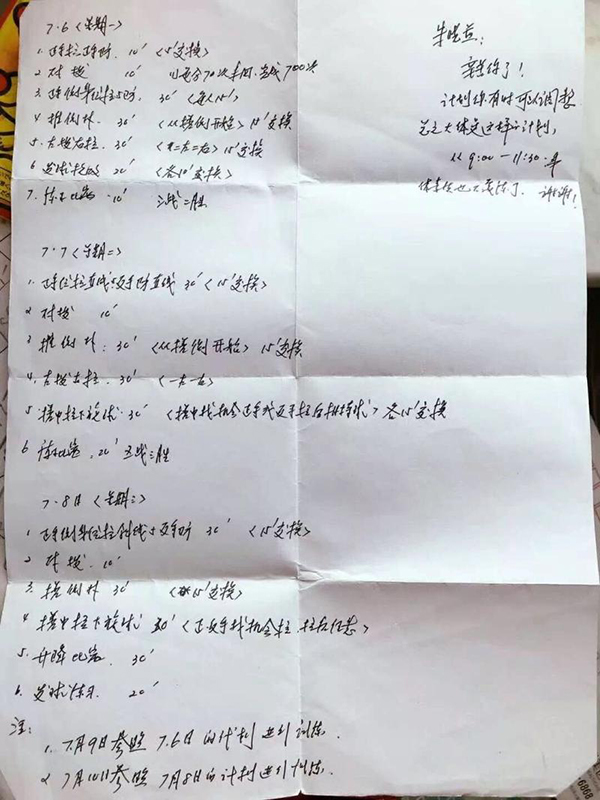 7.6 <星期一>
1. 正手拉正手防. 10′ <5′交换>
2 对拨 10′ 以每分70次来回,完成700次
3 正手侧身位拉与防. 30′ <每人15′>
4 推侧扑. 30′ <从搭侧开始> 15′交换
5. 左拨右拉. 30′ <右二左一右> 15′交换
6 发球抢攻 20′ <各10′交换>
7. 练习比赛. 10′ 三战二胜
7.7 <星期二>
1. 正手位拉直线与反手防直线 30′ <15′交换>
2 对拨 10′
3 推侧扑. 30′ <从搭侧开始> 15′交换
4. 左拨右拉. 30′ <一左一右>
5. 搓中拉下旋球. 30′ <搓中找机会正手或反手拉后排持球> 各15′交换
6 练习比赛. 20′ 五战三胜
7.8日 <星期三>
1 正手侧身位拉斜线与反手防 30′ <15′交换>
2 对拨. 10′
3. 搭侧扑 30′ <15′交换>
4 搓中拉下旋球 30′ <正反手找机会拉. 拉后任意>
5. 升降比赛. 30′
6. 发球练习. 20′
注:
1. 7月9日参照 7.6日的计划进行训练.
2 7月10日参照 7月8日的计划进行训练.
辛苦你了!
计划你有时可以调整
总之大体是这样的计划,
从9:00-11:30.
谢谢!
6868